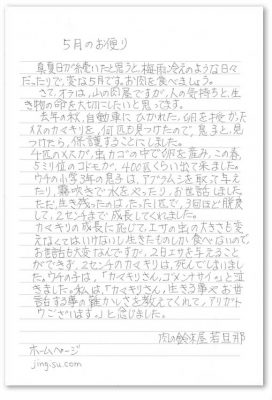 5月のお便り
真夏日が続いたと思うと、梅雨冷えのような日々
だったりで、変な5月です。お肉を食べましょう。
さて、オラは、山の肉屋ですが、人の気持ちと、生
き物の命を大切にしたいと思ってます。
去年の秋、自動車に ひかれた、卵を抱かった
メスのカマキリを、何匹か見つけたので、思うと、見
つけたら、保護することにしました。
4匹のメスが、虫カゴの中で卵を産み、この春、
5ミリ位のコドモが、400匹くらい出て来ました。
ウチの小学3年の息子は、アブラムシを取って与え
たり、霧吹きで水をやったり、お世話しました。
ただ、生き残ったのは、たった1匹で、3回ほど脱皮
して、2センチまで成長してくれました。
カマキリの成長に応じて、エサの虫の大きさも変
えなくてはいけないし、生きたものしか食べないので、
お世話も大変なんですが、2日エサを与えること
ができず、2センチのカマキリは、死んでしまいまし
た。ウチの子は、「カマキリさん、ゴメンナサイ。」と泣
きました。私は、「カマキリさん、生きる事や、お世
話する事の難かしさを教えてくれて、アリガト
ウございます。」と念じました。
肉の鈴木屋 若旦那
ホームページ
jingisu.com